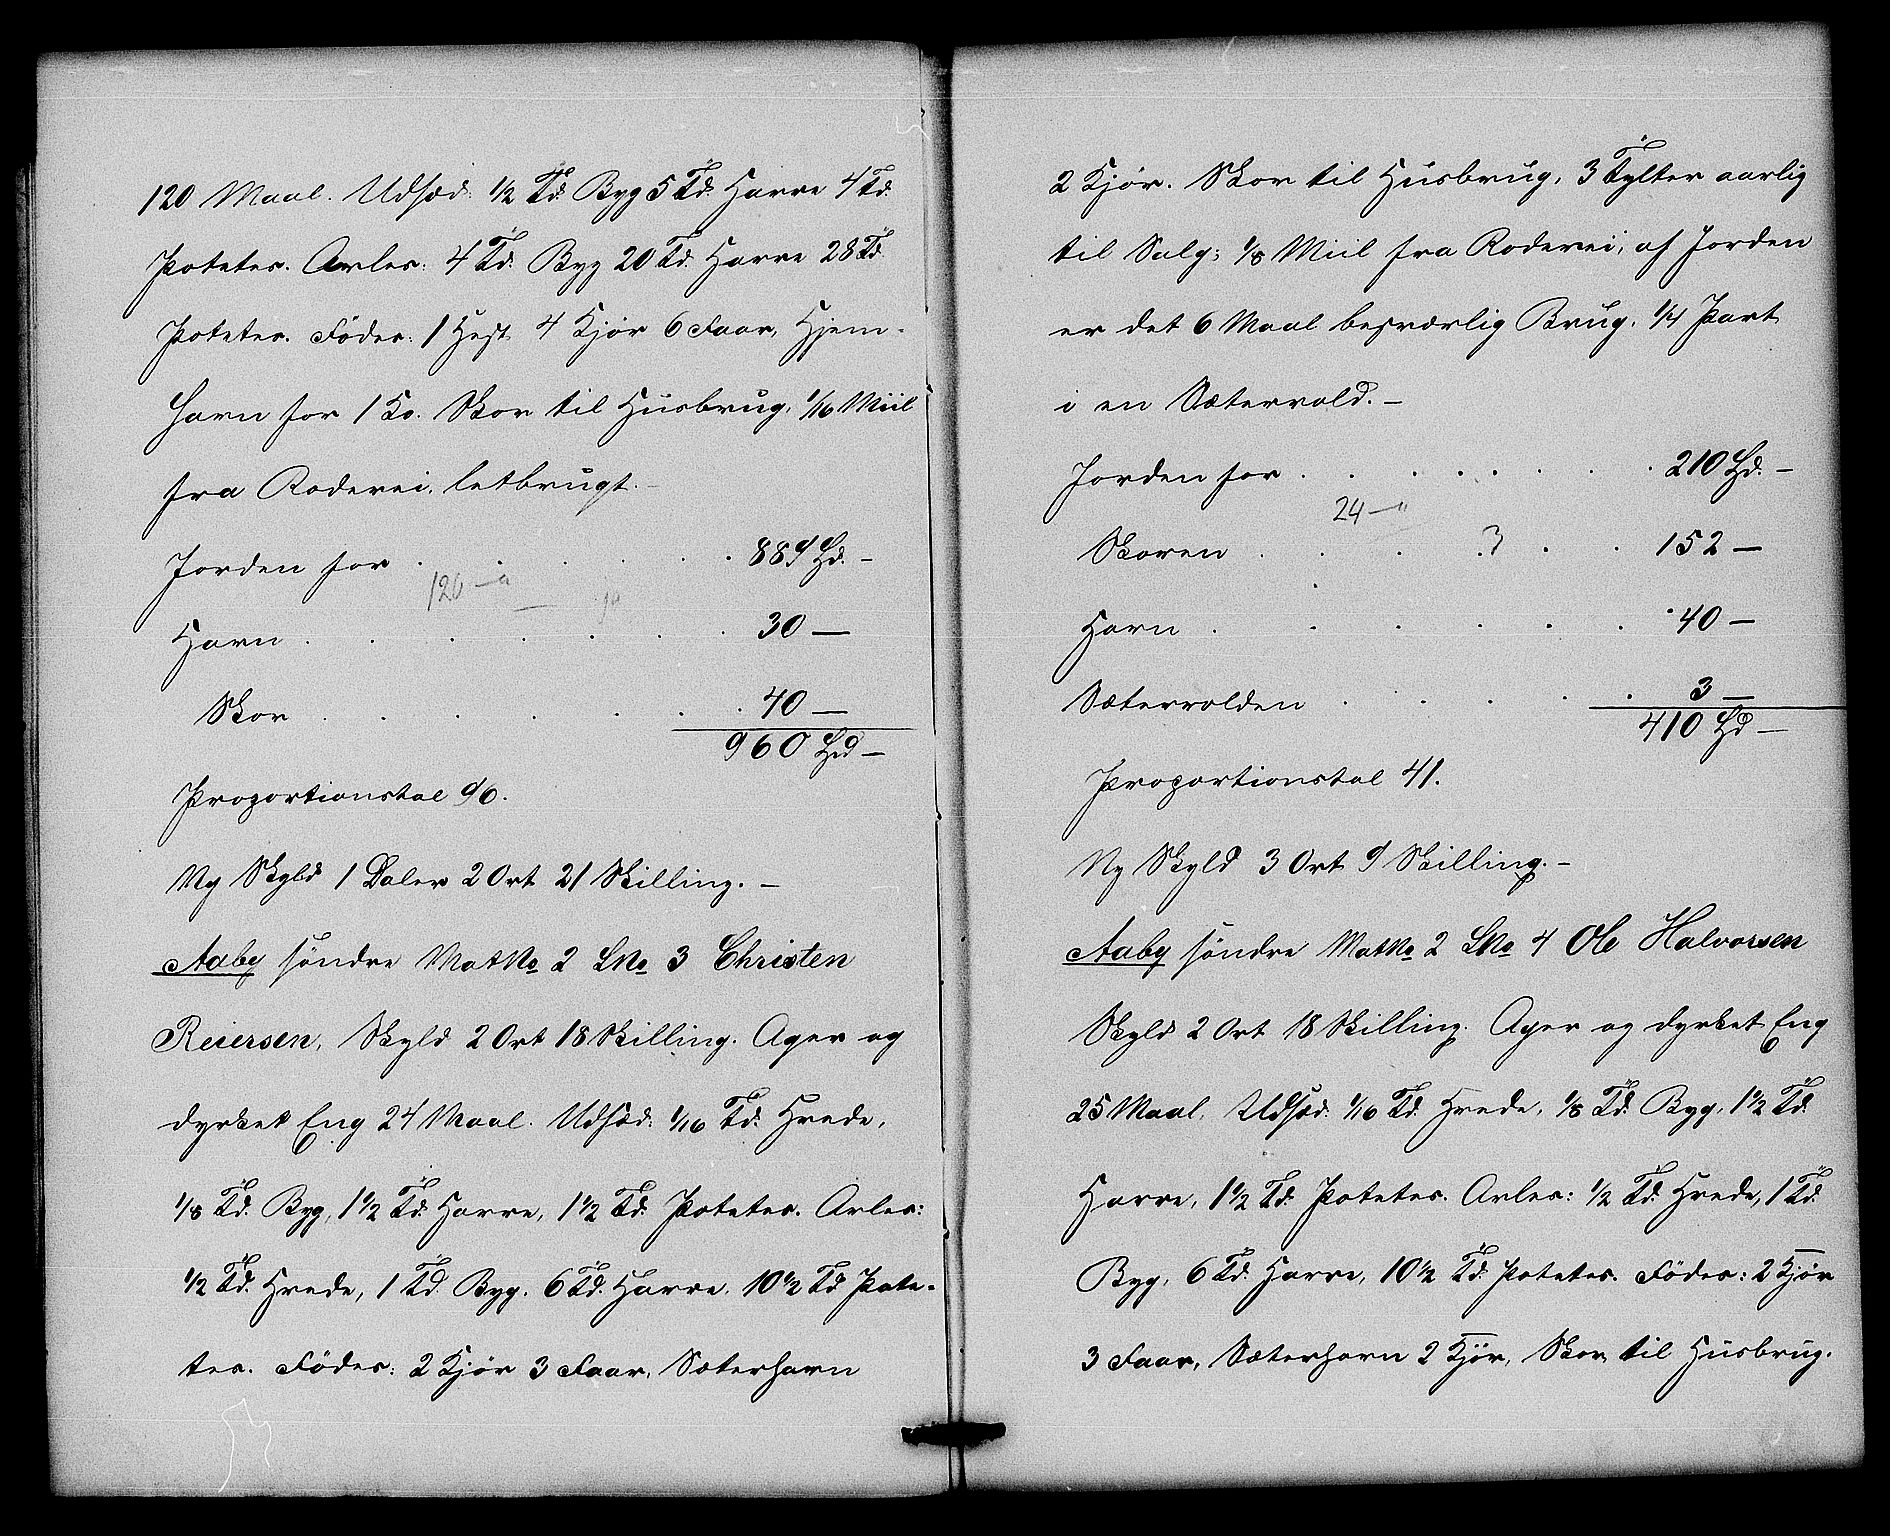 120 Maal. Udsæd: 1/2 Td. Byg 5 Td. Havre 4 Td.
Potetes. Avles: 4 Td. Byg 20 Td. Havre 28 Td.
Potetes. Födes: 1 Hest 4 Kjør 6 Faar, Hjem-
havn for 1 Ko. Skov til Huusbrug, 1/16 Miil
fra Rodevei, letbrugt.-
Jorden for . . . . . 889 Hd.-
120 -a
Havn . . . . . . . 30 —
Skov . . . . . . . 40 —
960 Hd —
Proportionstal 96.
Ny Skyld 1 Daler 2 Ort 21 Skilling. —
Aaby søndre MatNo 2 LNo 3 Christen
Reiersen, Skyld 2 Ort 18 Skilling. Ager og
dyrket Eng 24 Maal. Udsæd: 1/16 Td. Hvede,
1/8 Td. Byg, 1 1/2 Td. Havre, 1 1/2 Td. Potetes. Avles:
1/2 Td. Hvede, 1 Td. Byg. 6 Td. Havre. 10 1/2 Td Pote-
tes. Födes: 2 Kjør 3 Faar, Sæterhavn
2 Kjør. Skov til Huusbrug, 3 Tylter aarlig
til Salg; 1/8 Miil fra Rodevei, af Jorden
er det 6 Maal besværlig Brug. 1/4 Part
i en Sætervold.-
Jorden for . . . . . . . 210 Hd.-
24 -"
Skoven . . . . 3 . . 152 —
Havn . . . . . . . 40 —
Sætervolden . . . . . 3 —
410 Hd —
Proportionstal 41.
Ny Skyld 3 Ort 9 Skilling.-
Aaby søndre MatNo 2 LNo 4 Ole Halvorsen
Skyld 2 Ort 18 Skilling. Ager og dyrket Eng
25 Maal. Udsæd: 1/16 Td. Hvede, 1/8 Td. Byg, 1 1/2 Td.
Havre, 1 1/2 Td. Potetes. Avles: 1/2 Td. Hvede, 1 Td.
Byg, 6 Td. Havre, 10 1/2 Td. Potetes. Födes: 2 Kjør
3 Faar, Sæterhavn 2 Kjør, Skov til Huusbrug.